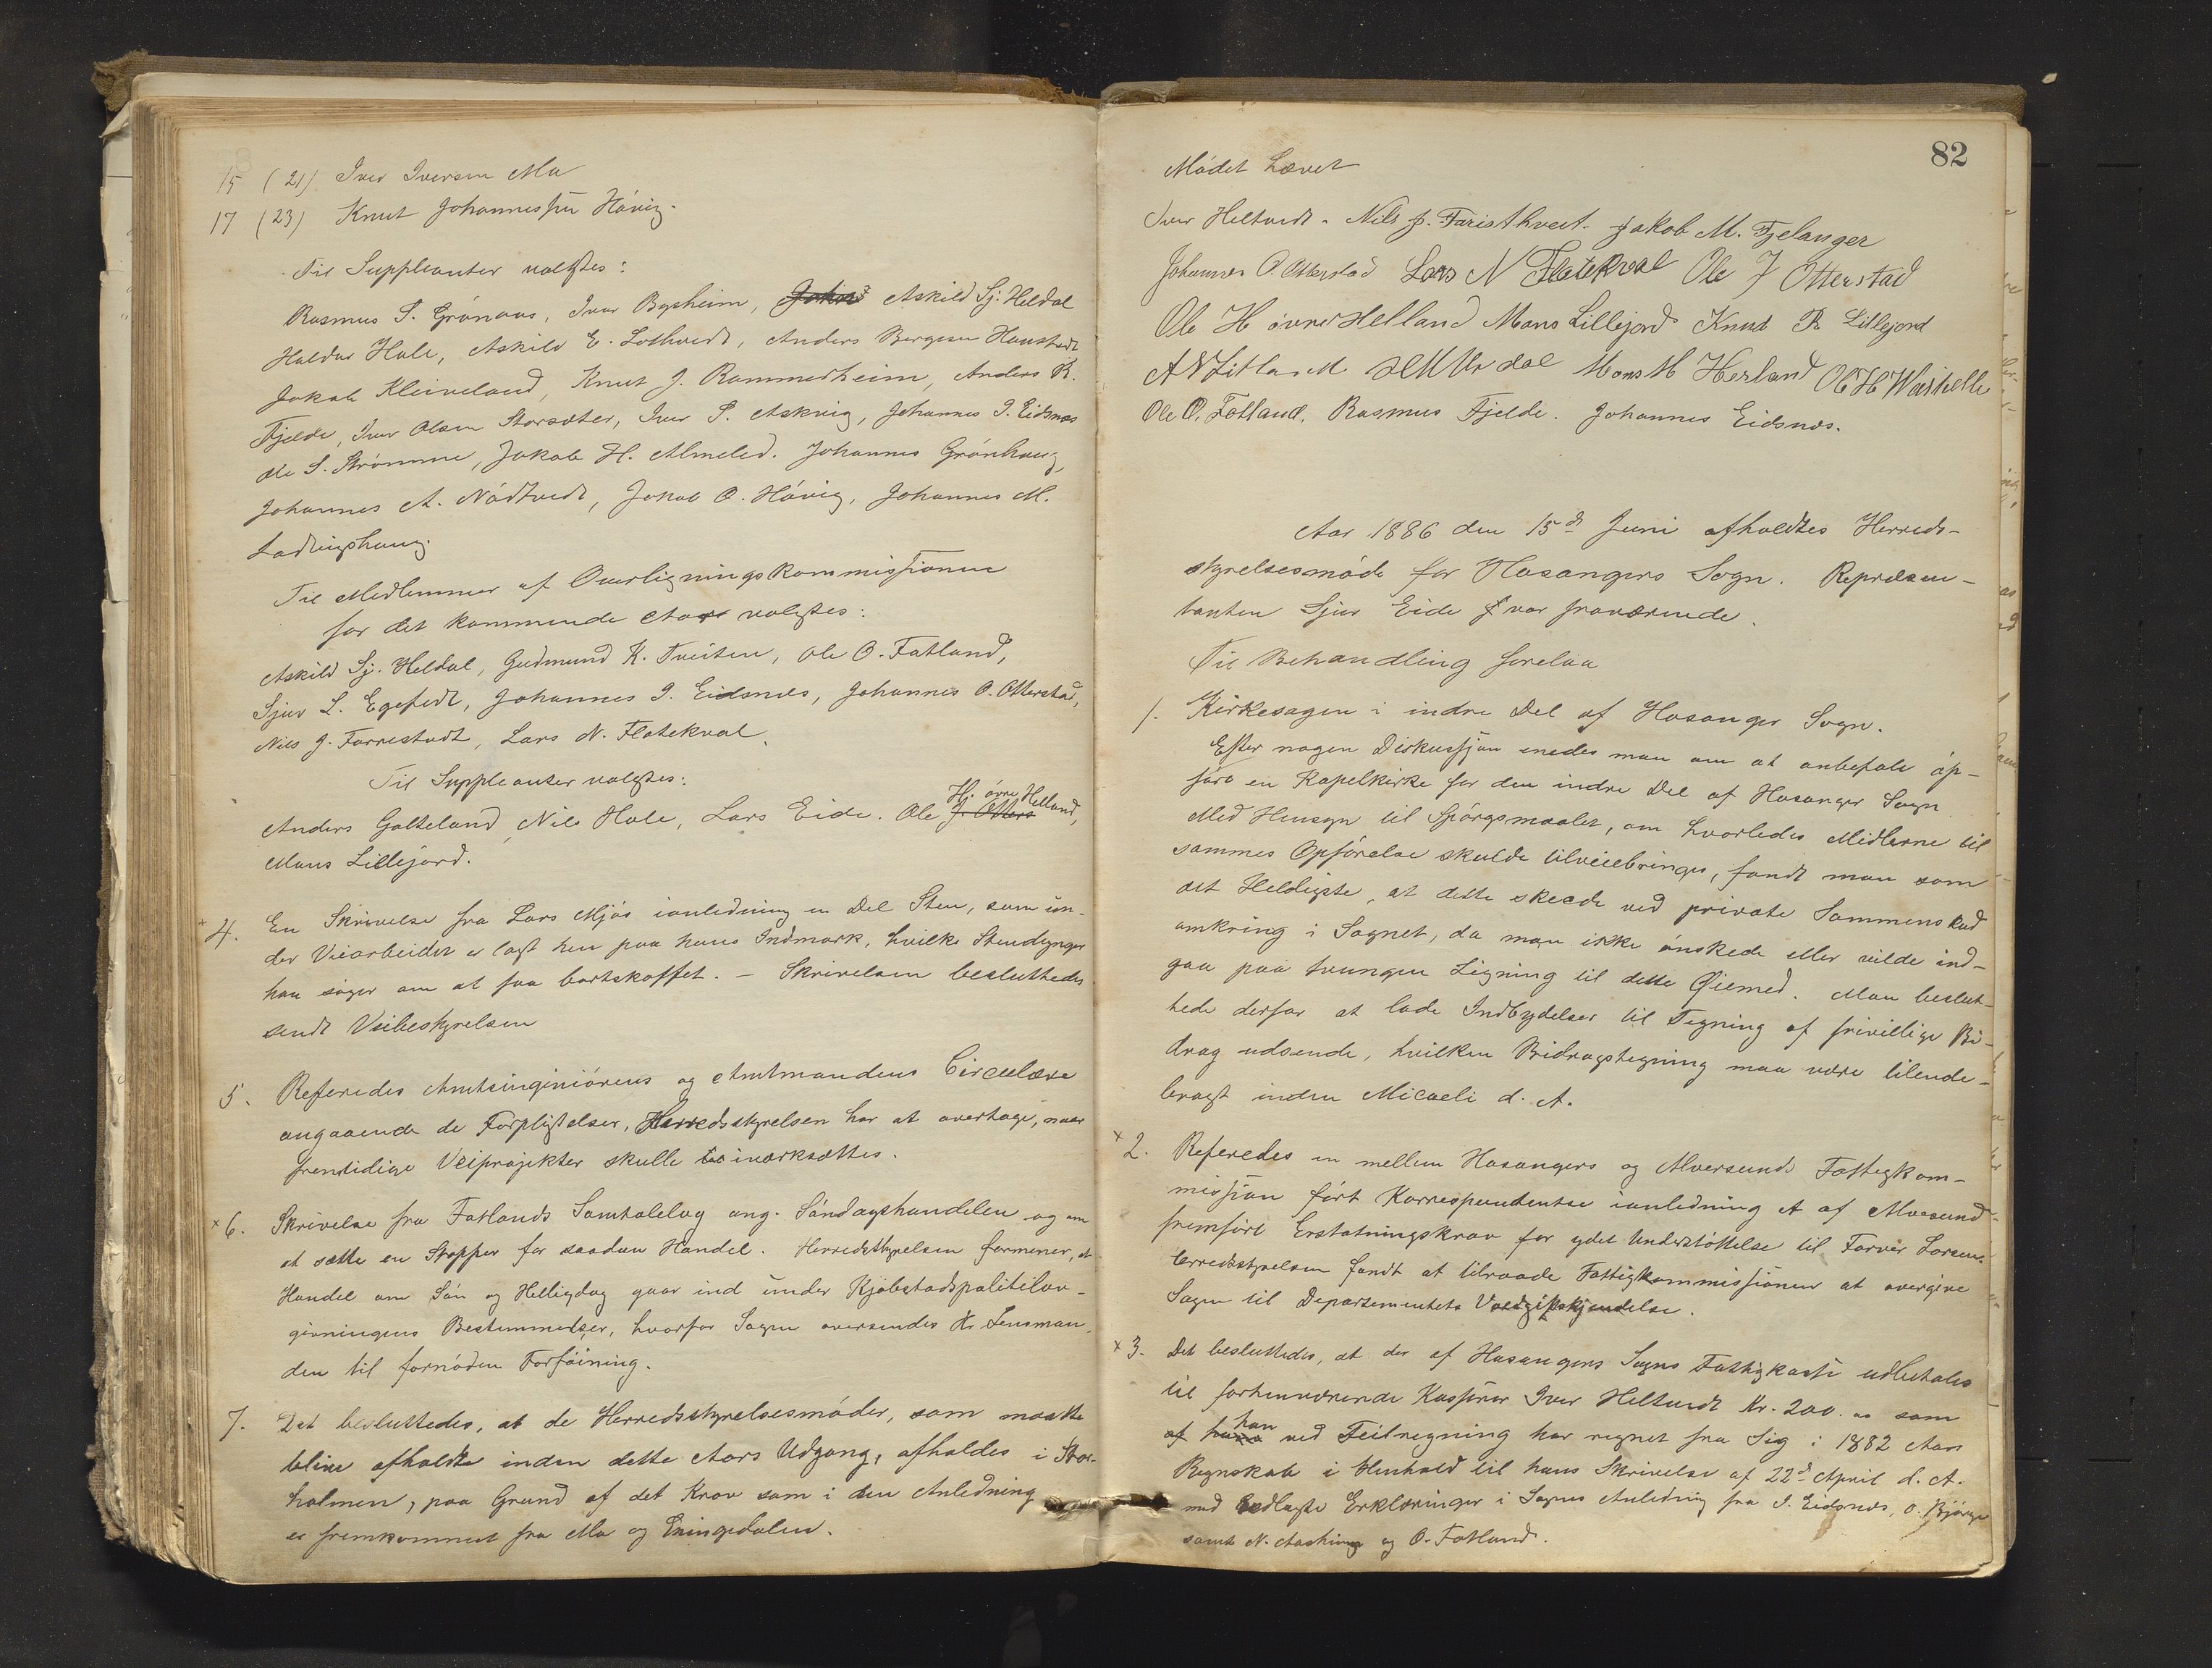 15 (21) Iver Iversen Mo
17 (23) Knut Johannessen Hávig.
Til Suppleanter valgtes:
Rasmus S. Grónaas, Ivar Bysheim, Askild Sj. Heldal
Haldor Hole, Askild E. Lothvedt, Anders Børgesen Haustvedt
Jakob Kleiveland, Knut J. Rammerheim, Anders R.
Fjelde, Iver Olsen Storsæter, Iver P. Askvig, Johannes J. Eidsnæs
Ole S. Strómme, Jakob H. Almelid. Johannes Grónhaug,
Johannes A. Nódtvedt, Jakob O. Hávig, Johannes M.
Ladingshaug.
Til Medlemmer af Overligningskommissionen
for det kommende Aar valgtes:
Askild Sj. Heldal, Gudmund K. Tveiten, Ole O. Fatland,
Sjur L. Egefedt, Johannes J. Eidsnæs, Johannes O. Otterstad,
Nils J. Farrestvedt, Lars N. Flatekval.
Til Suppleanter valgtes:
H. óvre Helland,
Anders Galteland, Nils Hole, Lars Eide. Ole J. Otters
Mons Lillejord.
4. En Skrivelse fra Lars Mjós ianledning en Del Sten, som un-
der Veiarbeidet er lagt hen paa hans Indmark, hvilke Stendynger
han sóger om at faa bortskaffet. – Skrivelsen besluttedes
sendt Veibestyrelsen
5. Referedes Amtsingeniórens og Amtmandens Circulære
angaaende de Forpligtelser, Herredsstyrelsen har at overtage, naar
fremtidige Veiprojekter skulle iværksættes.
× 6. Skrivelse fra Fatlands Samtalelag ang. Sóndagshandelen og om
at sætte en Stopper for saadan Handel. Herredsstyrelsen formener, at
Handel om Són og Helligdag gaar ind under Kjóbstadspolitilov-
givningens Bestemmelser, hvorfor Sagen oversendes Hr Lensman-
den til fornóden Forfóining.
7. Det besluttedes, at de Herredsstyrelsesmóder, som maatte
blive afholdte inden dette Aars Udgang, afholdes i Stor-
holmen, paa Grund af det Krav som i den Anledning
er fremkommet fra Mo og Eningedalen.
82
Módet hævet
Iver Heltvedt. Nils J. Faristhveit. Jakob M. Fjelanger
Johannes O. Otterstad Lars N Flatekval Ole J Otterstad
Ole H óvre Helland Mons Lillejord Knut R Lillejord
Mons M Herland
Ole O. Fotland. Rasmus Fjelde. Johannes Eidsnes.
Aar 1886 den 15de Juni afholdtes Herreds-
styrelsesmóde for Hosangers Sogn. Repræsen-
tanten Sjur Eide var fraværende.
Til Behandling forelaa
1. Kirkesagen i indre Del af Hosanger Sogn.
Efter nogen Diskussjon enedes man om at anbefale óp-
fórt en Kapelkirke for den indre Del af Hosanger Sogn
Med Hensyn til Spórgsmaalet, om hvorledes Midlerne til
sammes Opfórelse skulde tilveiebringes, fandt man som
det Heldigste, at dette skeede ved private Sammenskud
omkring i Sognet, da man ikke ónskede eller vilde ind-
gaa paa tvungen Ligning til dette Øiemed. Man beslut-
tede derfor at lade Indbydelser til Tegning af frivillige Bi-
drag udsende, hvilken Bidragstegning maa være tilende-
bragt inden Micaeli d. A.
× 2. Referedes en mellem Hosangers og Alversunds Fattigkom-
mission fórt Korrespondentse ianledning et af Alversund
fremfórt Erstatningskrav for ydet Understóttelse til Farver Larsen.
Herredsstyrelsen fandt at tilraade Fattigkommissionen at overgive
Sagen til Departementets Voldgiftskjendelse.
× 3. Det besluttedes, at der af Hosangers Sogns Fattigkasse udbetales
til forhenværende Kasserer Iver Heltvedt Kr. 200.00 som
han
af hans ved Feilregning har regnet fra Sig i 1882 Aars
Regnskab i Henhold til hans Skrivelse af 22de April d. A.
med vedlagte Erklæringer i Sagens Anledning fra J. Eidsnæs, O. Bjórge
samt N. Aasheim og O. Fotland.